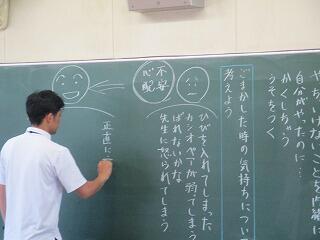 やちいけないことを内緒に
自分がやったのに…
かくしちゃう
うそをつく
ごまかした時の気持ちについて
考えよう
不安
心配
ひびを入れてしまった
カシオペアが弱ってしまう
ばれないかな
先生に怒られてしまう
正直に